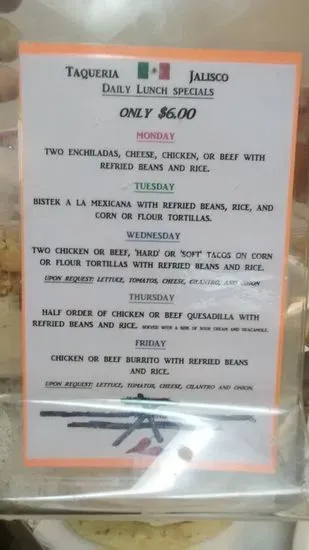 TAQUERIA JALISCO
DAILY LUNCH SPECIALS
ONLY $6.00
MONDAY
TWO ENCHILADAS, CHEESE, CHICKEN, OR BEEF WITH
REFRIED BEANS AND RICE.
TUESDAY
BISTEK A LA MEXICANA WITH REFRIED BEANS, RICE, AND
CORN OR FLOUR TORTILLAS.
WEDNESDAY
TWO CHICKEN OR BEEF, 'HARD' OR 'SOFT' TACOS ON CORN
OR FLOUR TORTILLAS WITH REFRIED BEANS AND RICE.
UPON REQUEST: LETTUCE, TOMATOS, CHEESE, CILANTRO, AND ONION
THURSDAY
HALF ORDER OF CHICKEN OR BEEF QUESADILLA WITH
REFRIED BEANS AND RICE. SERVED WITH A SIDE OF SOUR CREAM AND GUACAMOLE.
FRIDAY
CHICKEN OR BEEF BURRITO WITH REFRIED BEANS
AND RICE.
UPON REQUEST: LETTUCE, TOMATOS, CHEESE, CILANTRO AND ONION.